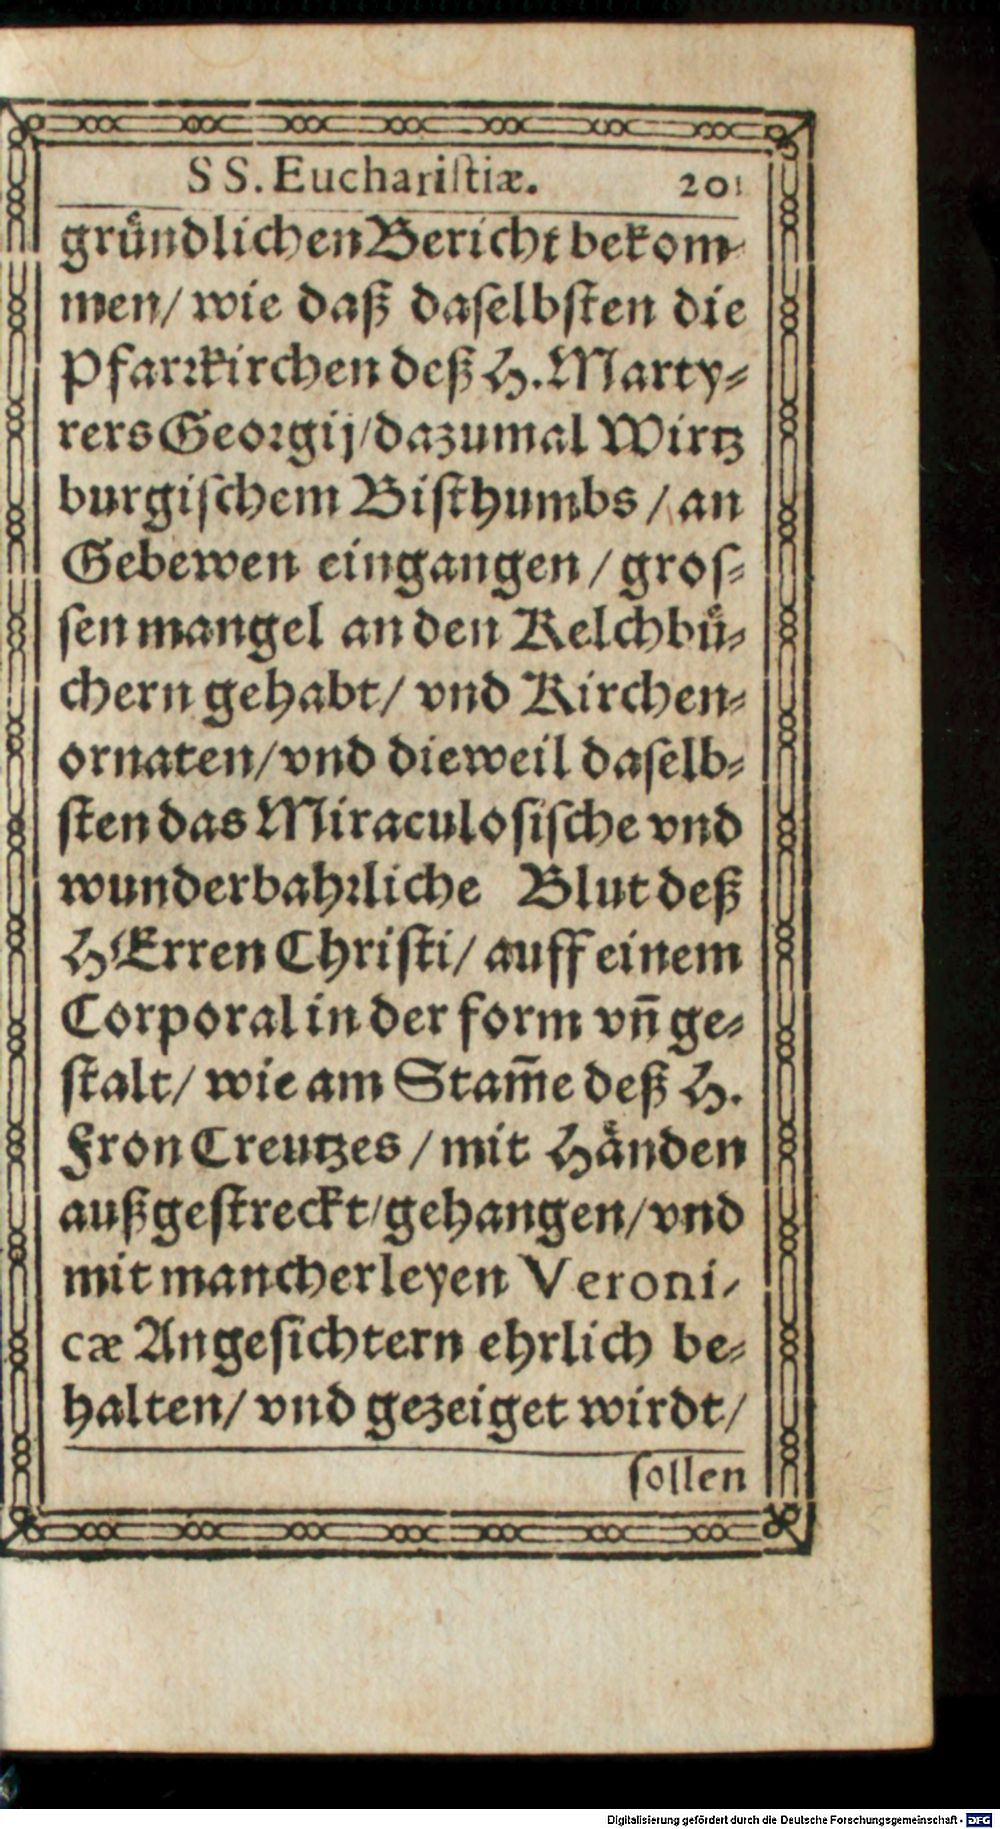 SS. Euchariſtiæ. 201
gruͤndlichen Bericht bekom-
men/ wie daß daſelbſten die
Pfarꝛkirchen deß H. Marty-
rers Geoꝛgij/ dazumal Wirtz
burgiſchem Biſthumbs / an
Gebewen eingangen / groſ-
ſen mangel an den Kelchbuͤ-
chern gehabt/ vnd Kirchen-
ornaten/ vnd dieweil daſelb-
ſten das Miraculoſiſche vnd
wunderbahꝛliche Blut deß
HErren Chriſti/ auff einem
Corporal in der form vn̄ ge-
ſtalt/ wie am Stam̄e deß H.
Fron Creutzes / mit Haͤnden
außgeſtreckt/ gehangen/ vnd
mit mancherleyen Veroni-
cæ Angeſichtern ehrlich be-
halten/ vnd gezeiget wirdt/
ſollen
Digitalisierung gefördert durch die Deutsche Forschungsgemeinschaft - DFG